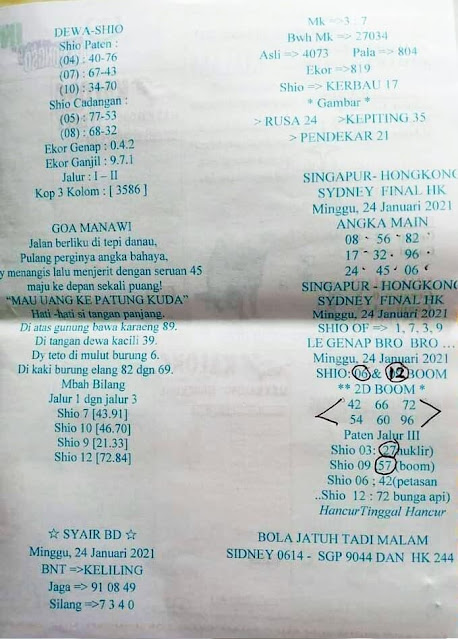 DEWA-SHIO
Shio Paten :
(04) : 40-76
(07) : 67-43
(10) : 34-70
Shio Cadangan :
(05) : 77-53
(08) : 68-32
Ekor Genap : 0.4.2
Ekor Ganjil : 9.7.1
Jalur : I – II
Kop 3 Kolom : [ 3586 ]
GOA MANAWI
Jalan berliku di tepi danau,
Pulang perginya angka bahaya,
y menangis lalu menjerit dengan seruan 45
maju ke depan sekali puang!
“MAU UANG KE PATUNG KUDA”
Hati -hati si tangan panjang.
Di atas gunung bawa karaeng 89.
Di tangan dewa kacili 39.
Dy teto di mulut burung 6.
Di kaki burung elang 82 dgn 69.
Mbah Bilang
Jalur 1 dgn jalur 3
Shio 7 [43.91]
Shio 10 [46.70]
Shio 9 [21.33]
Shio 12 [72.84]
☆ SYAIR BD ☆
Minggu, 24 Januari 2021
BNT =>KELILING
Jaga => 91 08 49
Silang =>7 3 4 0
Mk =>3 : 7
Bwh Mk => 27034
Asli => 4073 Pala => 804
Ekor =>819
Shio => KERBAU 17
* Gambar *
> RUSA 24 >KEPITING 35
> PENDEKAR 21
SINGAPUR- HONGKONG
SYDNEY FINAL HK
Minggu, 24 Januari 2021
ANGKA MAIN
08 56 82
17 32 96
24 45 06
SINGAPUR - HONGKONG
SYDNEY FINAL HK
SHIO OF => 1, 7, 3, 9
LE GENAP BRO BRO ...
Minggu, 24 Januari 2021
SHIO: 06 & 12 BOOM
** 2D BOOM *
42 66 72
54 60 96
Paten Jalur III
Shio 03: 27(nuklir)
Shio 09 57 (boom)
Shio 06 ; 42(petasan
..Shio 12 : 72 bunga api)
HancurTinggal Hancur
BOLA JATUH TADI MALAM
SIDNEY 0614 - SGP 9044 DAN HK 244